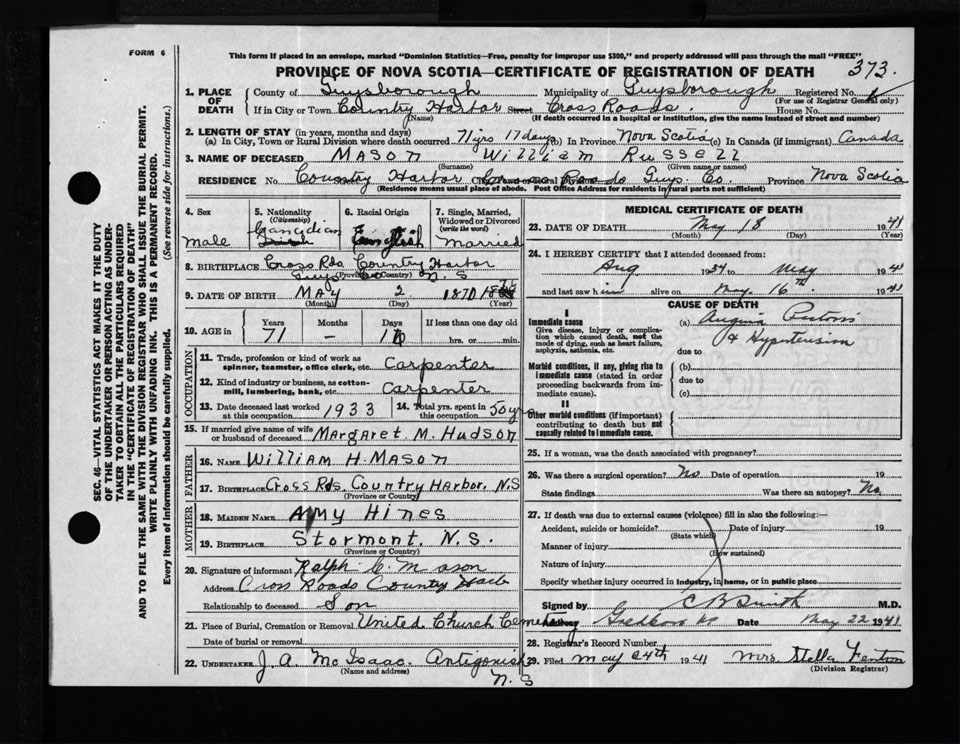 FORM 6
This form if placed in an envelope, marked "Dominion Statistics—Free, penalty for improper use $300," and properly addressed will pass through the mail "FREE"
PROVINCE OF NOVA SCOTIA—CERTIFICATE OF REGISTRATION OF DEATH 373.
1. PLACE OF DEATH
County of Guysborough Municipality of Guysborough Registered No.
(For use of Registrar General only)
If in City or Town Country Harbor Street Cross Roads. House No.
(Name) (If death occurred in a hospital or institution, give the name instead of street and number)
2. LENGTH OF STAY (in years, months and days)
(a) In City, Town or Rural Division where death occurred 71 yrs 17 days (b) In Province Nova Scotia (c) In Canada (if immigrant) Canada
3. NAME OF DECEASED Mason William Russell
(Surname) (Given name or names)
RESIDENCE No. Country Harbor Cross Roads Guys. Co. Province Nova Scotia
(Residence means usual place of abode. Post Office Address for residents in rural parts not sufficient)
4. Sex male
5. Nationality (Citizenship) Canadian
6. Racial Origin English
7. Single, Married, Widowed or Divorced (write the word) married
8. BIRTHPLACE Cross Rds. Country Harbor
Guys Co N.S
(Province or Country)
9. DATE OF BIRTH May 2 1870
(Month) (Day) (Year)
10. AGE in Years Months Days If less than one day old
71 — hrs. or min.
OCCUPATION
11. Trade, profession or kind of work as spinner, teamster, office clerk, etc. Carpenter
12. Kind of industry or business, as cotton-mill, lumbering, bank, etc. Carpenter
13. Date deceased last worked at this occupation 1933
14. Total yrs. spent in this occupation 50 yr
15. If married give name of wife or husband of deceased Margaret M. Hudson
FATHER
16. NAME William H. Mason
17. BIRTHPLACE Cross Rds. Country Harbor. N.S
(Province or Country)
MOTHER
18. MAIDEN NAME Amy Hines
19. BIRTHPLACE Stormont. N.S.
(Province or Country)
20. Signature of informant Ralph C. Mason
Address Cross Roads Country Harb
Relationship to deceased Son
21. Place of Burial, Cremation or Removal United Church Cemetery
Date of burial or removal
22. UNDERTAKER J. A. McIsaac. Antigonish
(Name and address)
N.S
MEDICAL CERTIFICATE OF DEATH
23. DATE OF DEATH May 18 1941
(Month) (Day) (Year)
24. I HEREBY CERTIFY that I attended deceased from:
Aug 1934 to May 1941
and last saw him alive on May 16th 1941
CAUSE OF DEATH
I
Immediate cause
Give disease, injury or complication which caused death, not the mode of dying, such as heart failure, asphyxia, asthenia, etc.
(a) Angina Pectoris
& Hypertension
due to
Morbid conditions, if any, giving rise to immediate cause (stated in order proceeding backwards from immediate cause).
(b)
due to
(c)
II
Other morbid conditions (if important) contributing to death but not causally related to immediate cause.
25. If a woman, was the death associated with pregnancy?
26. Was there a surgical operation? No Date of operation 19
State findings Was there an autopsy? No.
27. If death was due to external causes (violence) fill in also the following:
Accident, suicide or homicide? Date of injury 19
(State which)
Manner of injury
(How sustained)
Nature of injury
Specify whether injury occurred in industry, in home, or in public place
Signed by C B Smith M.D.
Address Date May 22 1941
28. Registrar's Record Number
29. Filed May 24th 1941 Mrs Stella Fenton
(Division Registrar)
SEC. 46—VITAL STATISTICS ACT MAKES IT THE DUTY
OF THE UNDERTAKER OR PERSON ACTING AS UNDERTAKER TO OBTAIN ALL THE PARTICULARS REQUIRED
IN THE "CERTIFICATE OF REGISTRATION OF DEATH" AND TO FILE THE SAME WITH THE DIVISION REGISTRAR WHO SHALL ISSUE THE BURIAL PERMIT.
WRITE PLAINLY WITH UNFADING INK. THIS IS A PERMANENT RECORD.
Every item of information should be carefully supplied. (See reverse side for instructions.)